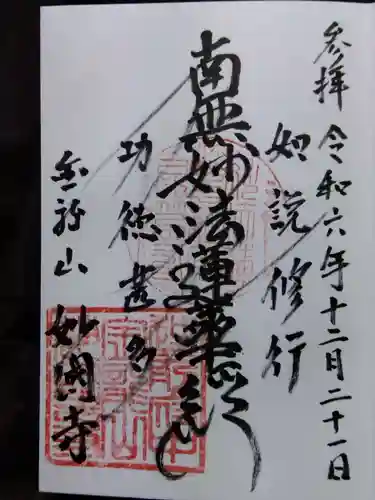 参拝 令和六年十二月二十一日
如説修行
南無妙法蓮華経
功徳甚多
金龍山 妙圀寺